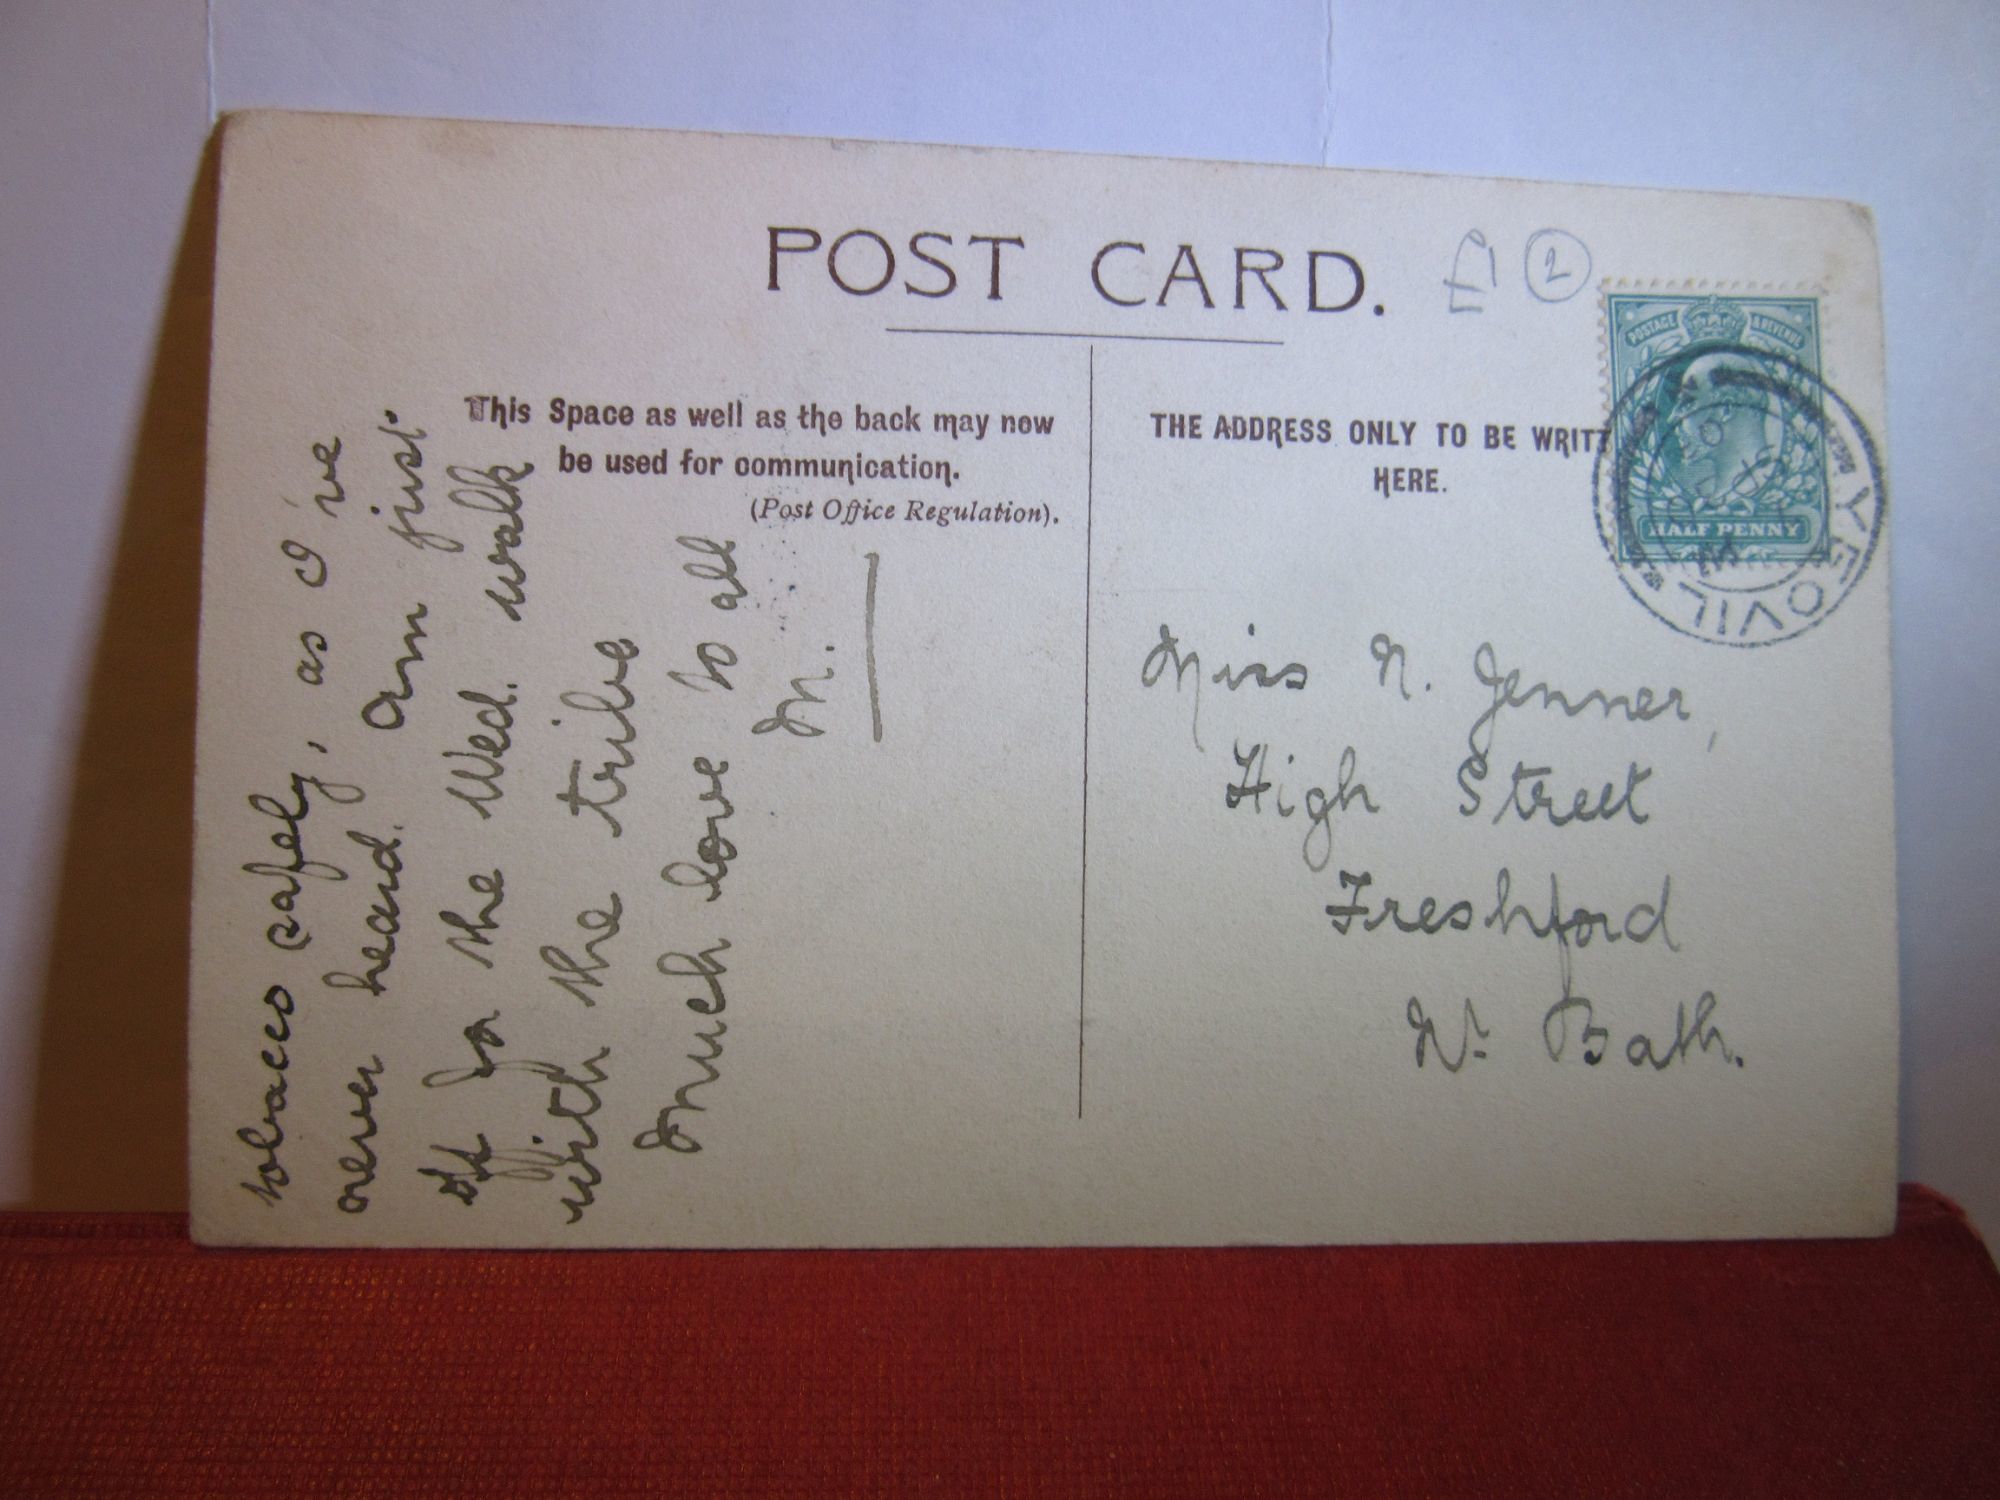 POST CARD.
£1 2
POSTAGE & REVENUE
HALF PENNY
YEOVIL
This Space as well as the back may now
be used for communication.
(Post Office Regulation).
THE ADDRESS ONLY TO BE WRITT
HERE.
tobacco safely, as I've
never heard. Am just
off for the Wed. walk
with the tribe
Much love to all
M.
Miss N. Jenner,
High Street
Freshford
Nr. Bath.